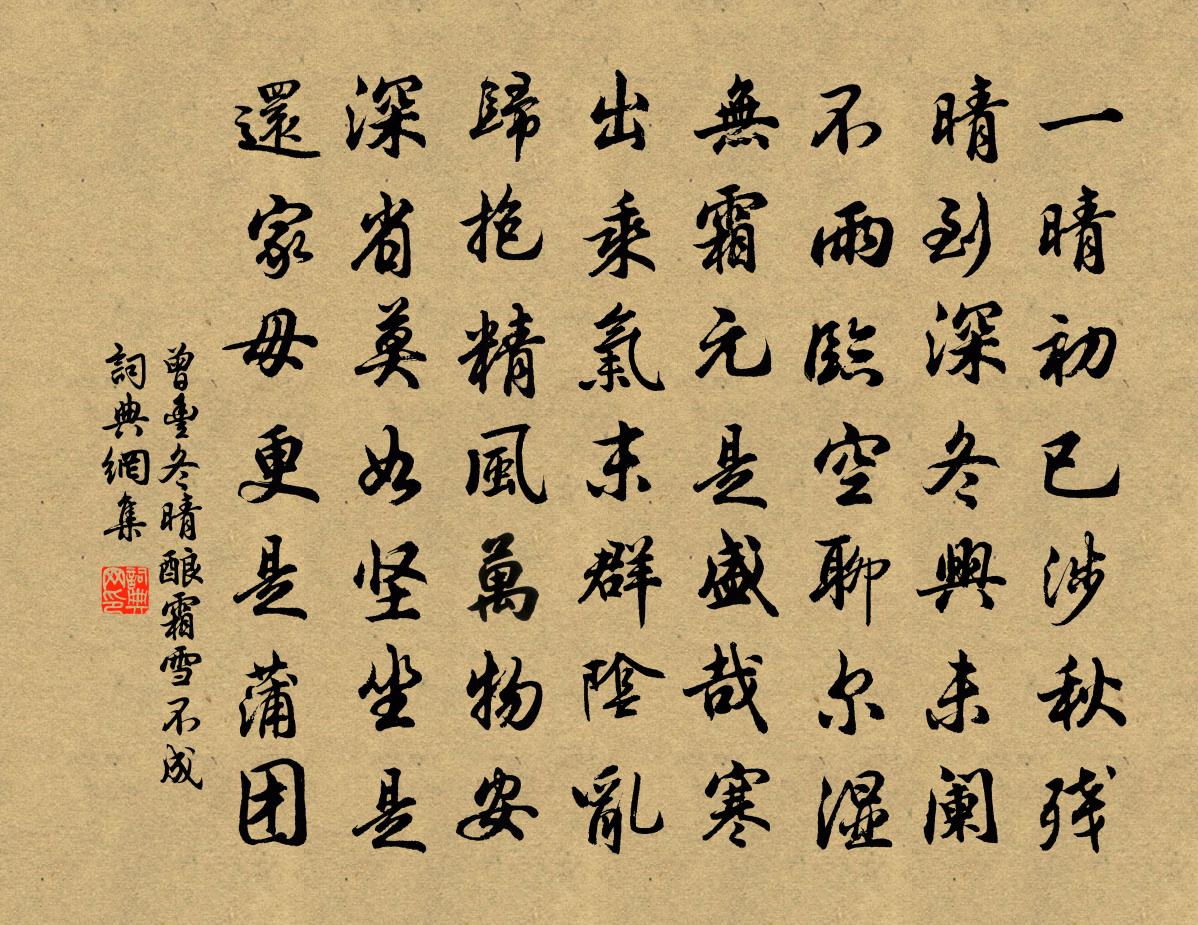 一晴初已涉秋残
晴到深冬興未阑
不雨臨空聊尔湿
無霜元是盛哉寒
出乘氣末群陰亂
歸抱精風萬物安
深省莫如坚坐是
還家毋更是蒲团
曾豊冬晴酿霜雪不成
詞典網集
詞典网印